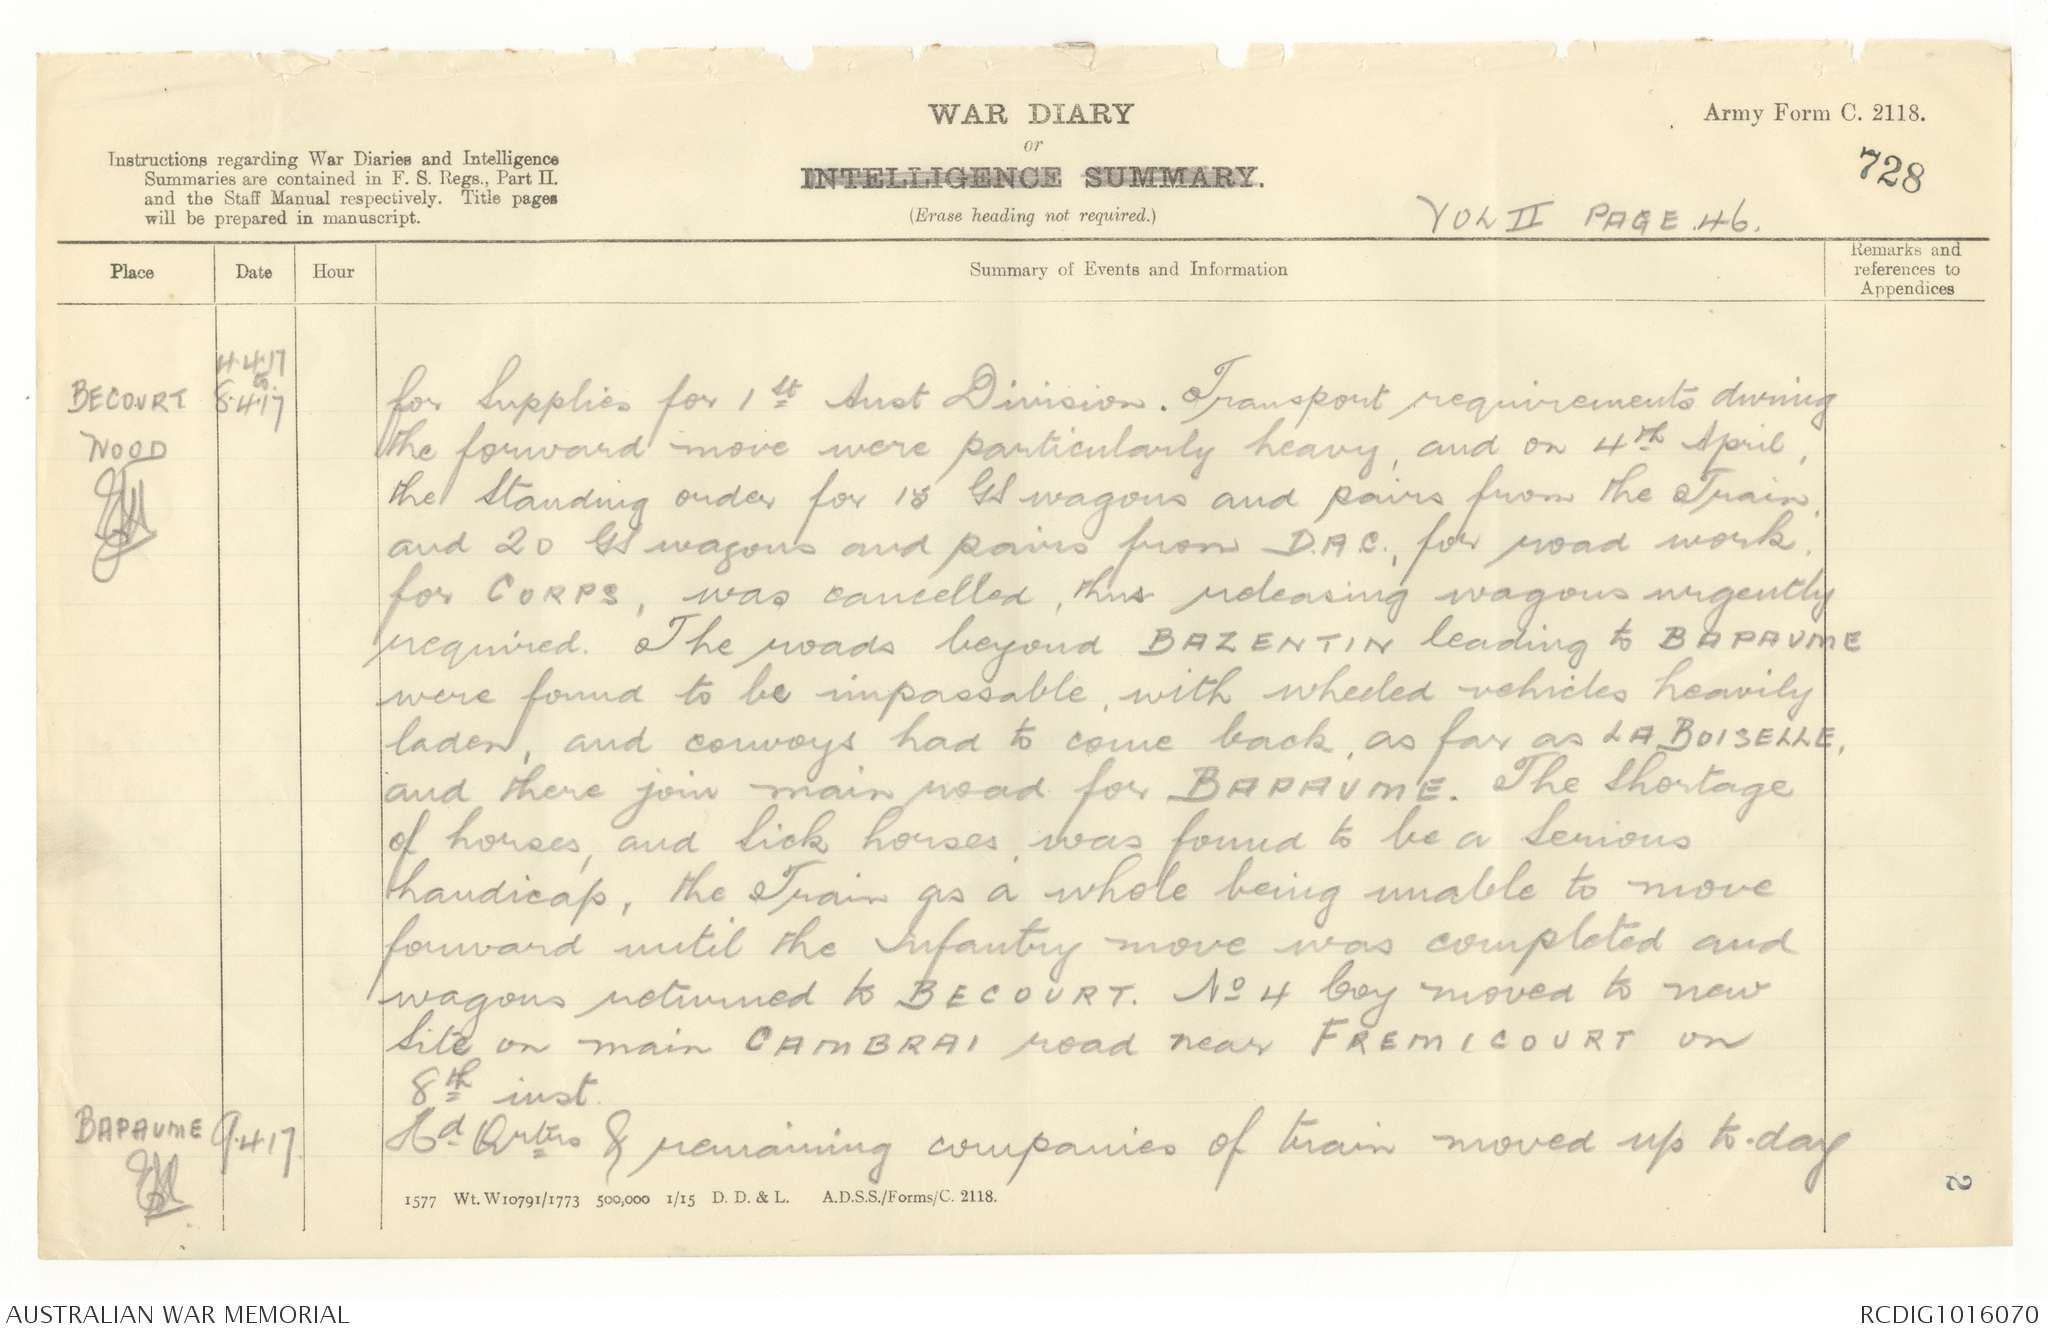 WAR DIARY
or
INTELLIGENCE SUMMARY.
(Erase heading not required.)
Army Form C. 2118.
728
Instructions regarding War Diaries and Intelligence
Summaries are contained in F. S. Regs., Part II.
and the Staff Manual respectively. Title pages
will be prepared in manuscript.
VOL II PAGE.46.
Place
Date
Hour
Summary of Events and Information
Remarks and
references to
Appendices
BECOURT
WOOD
4.4.17
to
8.4.17
for Supplies for 1st Aust Division. Transport requirements during
the forward move were particularly heavy, and on 4th April,
the Standing order for 15 GS wagons and pairs from the Train,
and 20 GS wagons and pairs from D.A.C., for road work,
for CORPS, was cancelled, thus releasing wagons urgently
required. The roads beyond BAZENTIN leading to BAPAUME
were found to be impassable, with wheeled vehicles heavily
laden, and convoys had to come back, as far as LA BOISELLE,
and there join main road for BAPAUME. The Shortage
of horses, and Sick horses, was found to be a Serious
handicap, the Train as a whole being unable to move
forward until the Infantry move was completed and
wagons returned to BECOURT. No 4 Coy moved to new
Site on main CAMBRAI road near FREMICOURT on
8th inst.
BAPAUME 9.4.17. Hd Qrtrs & remaining companies of train moved up to-day
1577 Wt. W10791/1773 500,000 1/15 D. D. & L. A.D.S.S./Forms/C. 2118.
2
AUSTRALIAN WAR MEMORIAL
RCDIG1016070